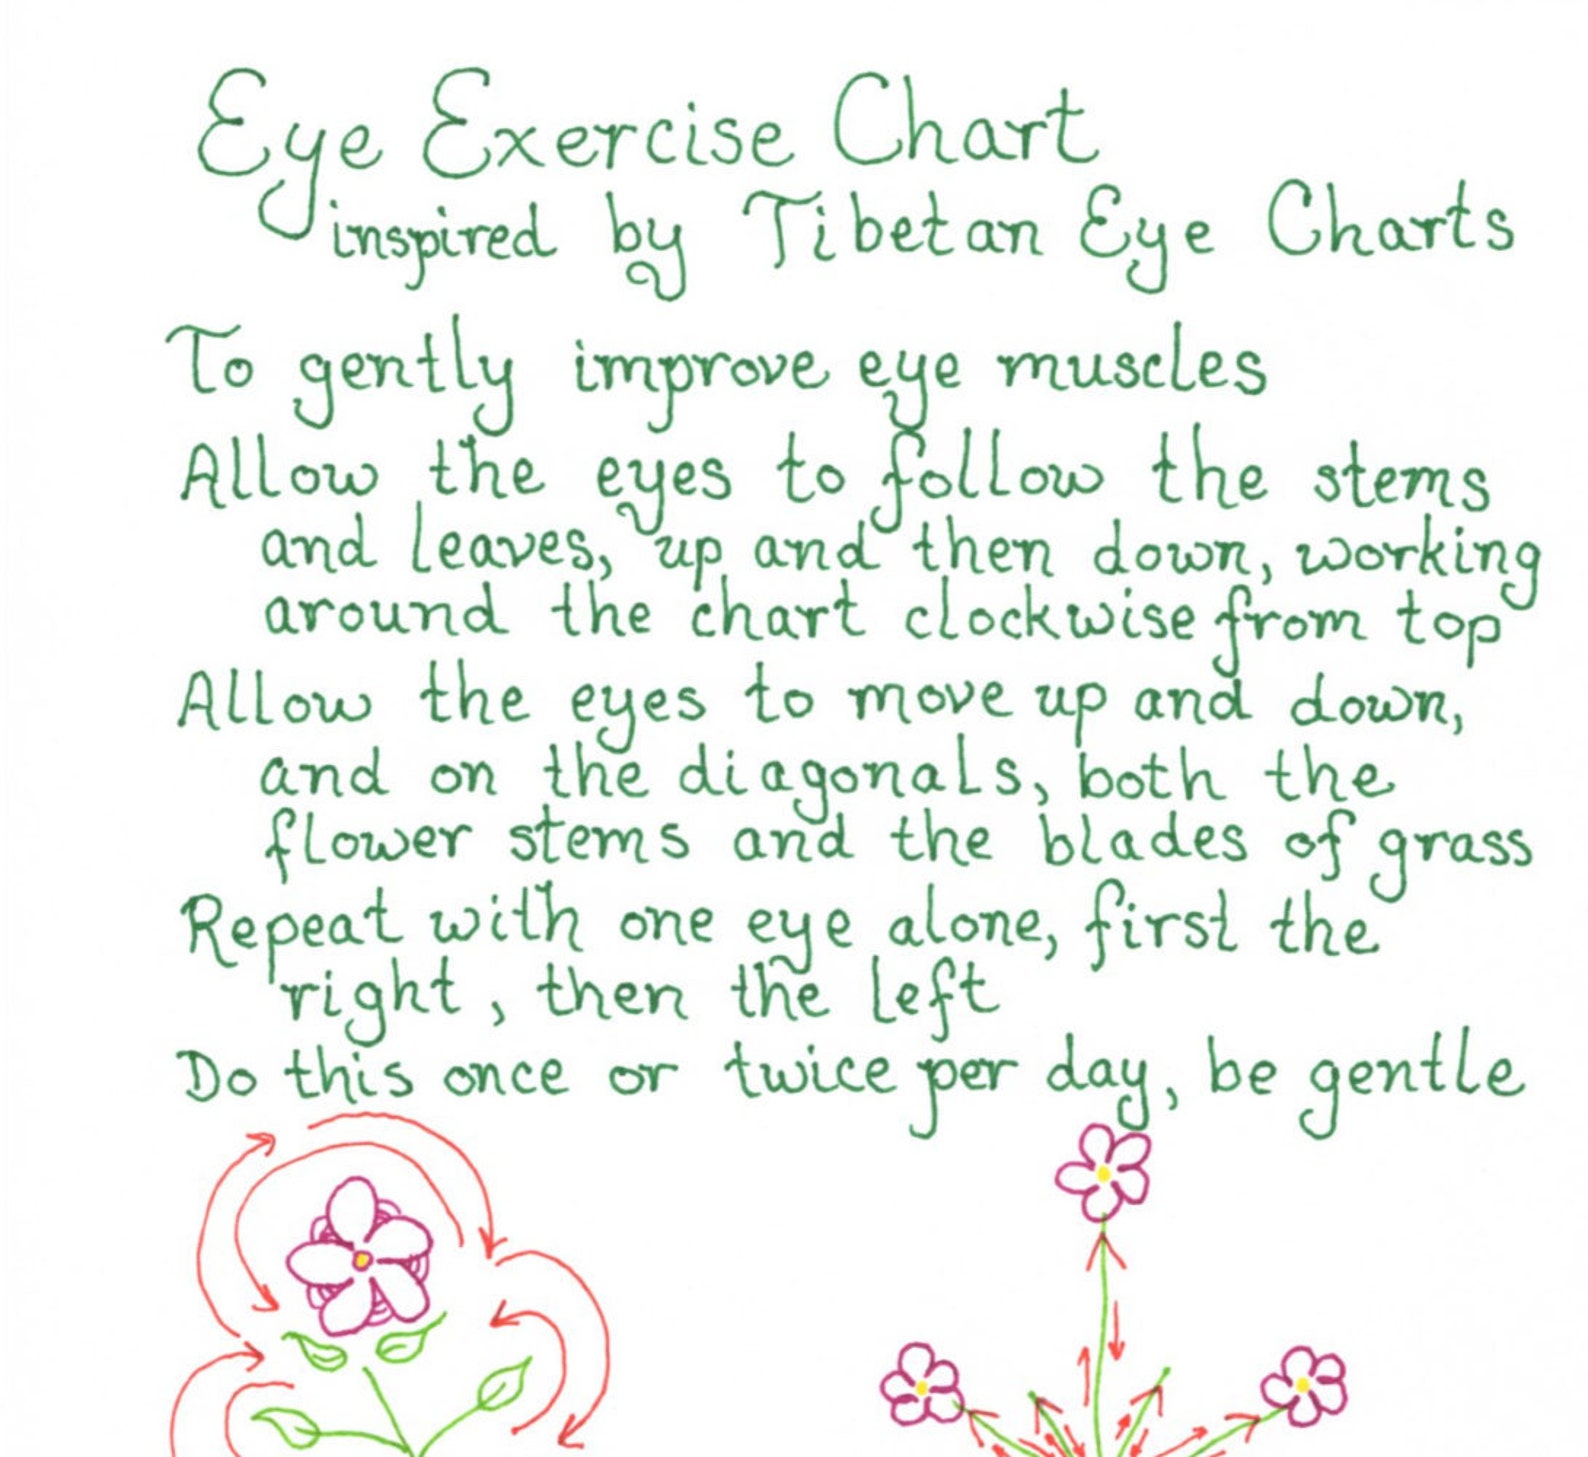 Eye Exercise Chart
inspired by Tibetan Eye Charts
To gently improve eye muscles
Allow the eyes to follow the stems
and leaves, up and then down, working
around the chart clockwise from top
Allow the eyes to move up and down,
and on the diagonals, both the
flower stems and the blades of grass
Repeat with one eye alone, first the
right, then the left
Do this once or twice per day, be gentle